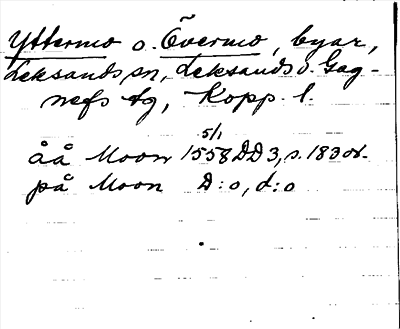 Yttermo o. Övermo, byar,
Leksands sn, Leksands o. Gag-
nefs tg, Kopp. l.
5/1
åå Moon 1558 DD 3, s. 183 or.
på Moon D:o, d:o